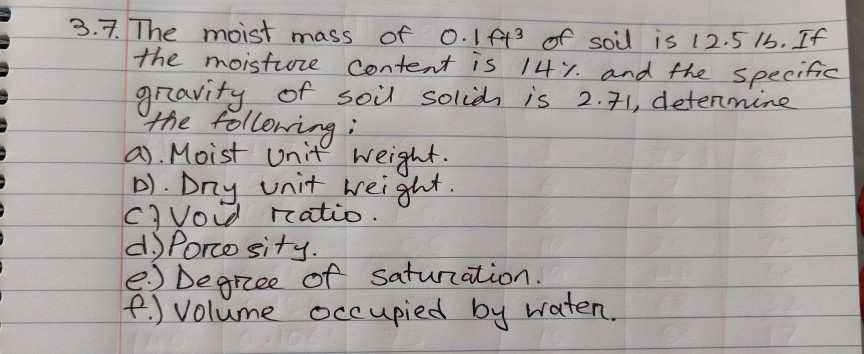 3.7. The moist mass of 0.1 ft³ of soil is 12.5 lb. If
the moisture content is 14%. and the specific
gravity of soil solids is 2.71, determine
the following:
a). Moist Unit weight.
b). Dry unit weight.
c) Void ratio.
d.) Porosity.
e.) Degree of saturation.
f.) Volume occupied by water.